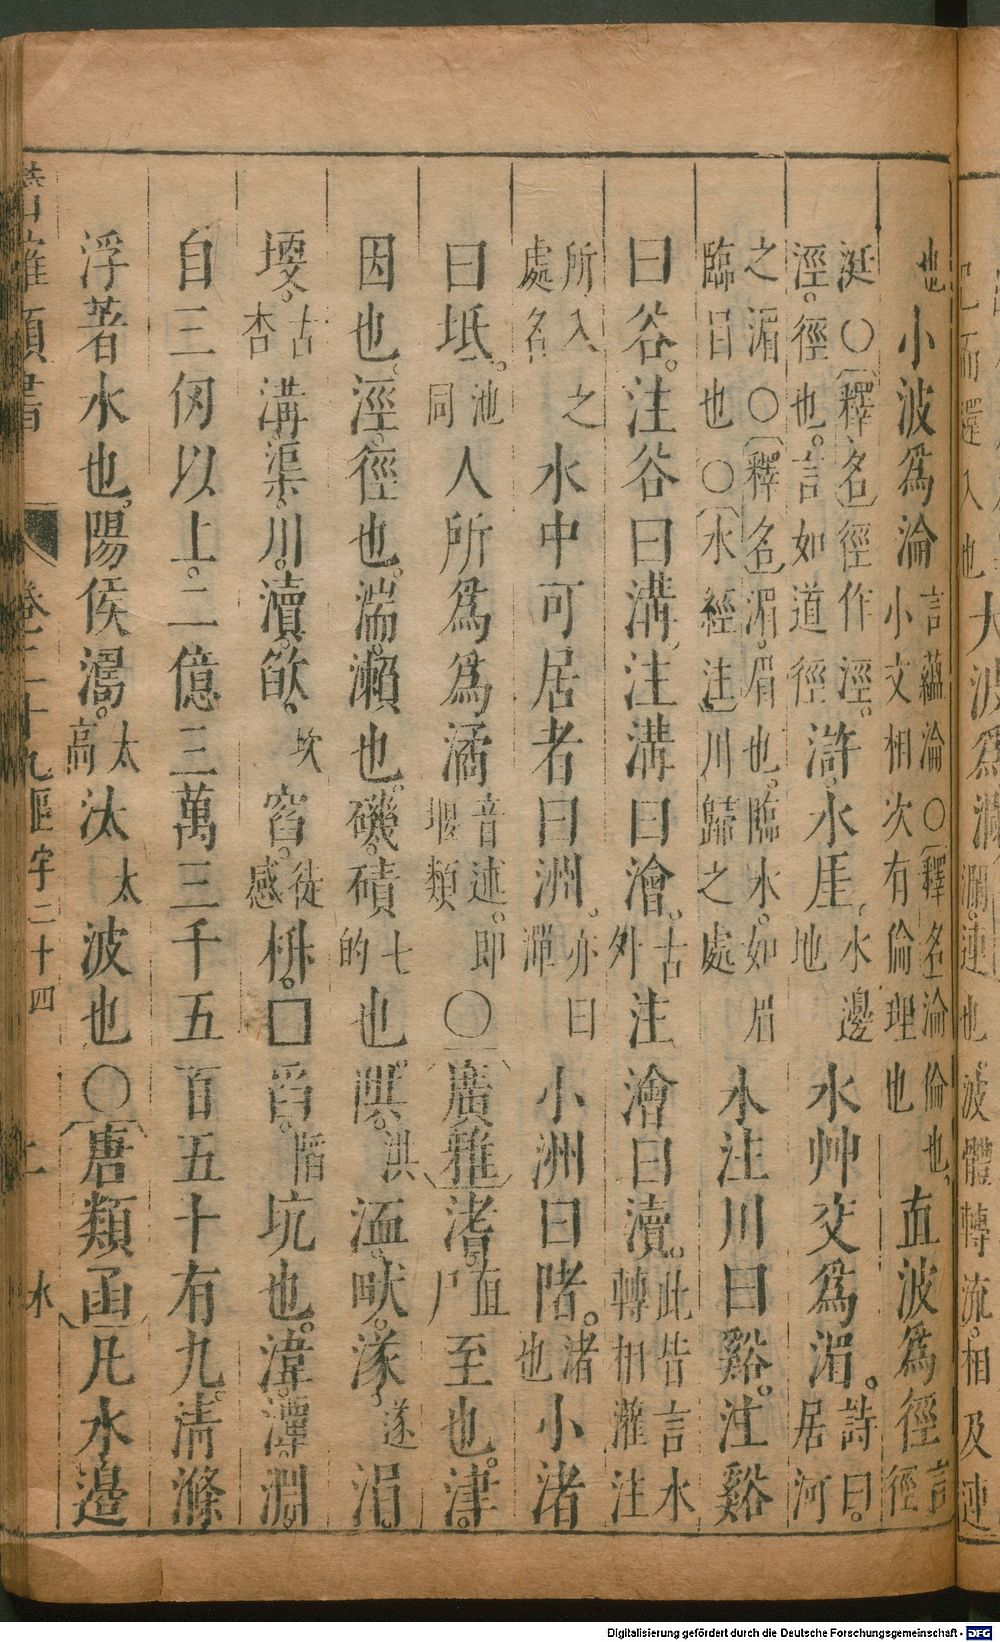 已而還入也大波為瀾瀾連也波體轉流相及連
也小波為淪言蘊淪○釋名淪倫也小文相次有倫理也直波為徑言徑
涏○釋名徑作涇涇徑也言如道徑滸水厓水邊地水艸交為湄詩曰居河
之湄○釋名湄眉也臨水如眉臨目也○水經注川歸之處水注川曰谿注谿
曰谷注谷曰溝注溝曰澮古外注澮曰瀆此皆言水轉相灌注
所入之處名水中可居者曰洲亦曰潬小洲曰陼渚也小渚
曰坻池同人所為為潏音述即堰類○廣雅渚直尸至也津
因也涇徑也湍瀨也磯磧七的也潩洪洫畎遂湄
古杏溝渠川瀆欿坎窞徒感□舀諂坑也湋潭淵
自三仞以上二億三萬三千五百五十有九清滌
浮著水也陽侯太高汰太波也○唐類函凡水邊
類書 卷二十九區字二十四 水
Digitalisierung gefördert durch die Deutsche Forschungsgemeinschaft - DFG